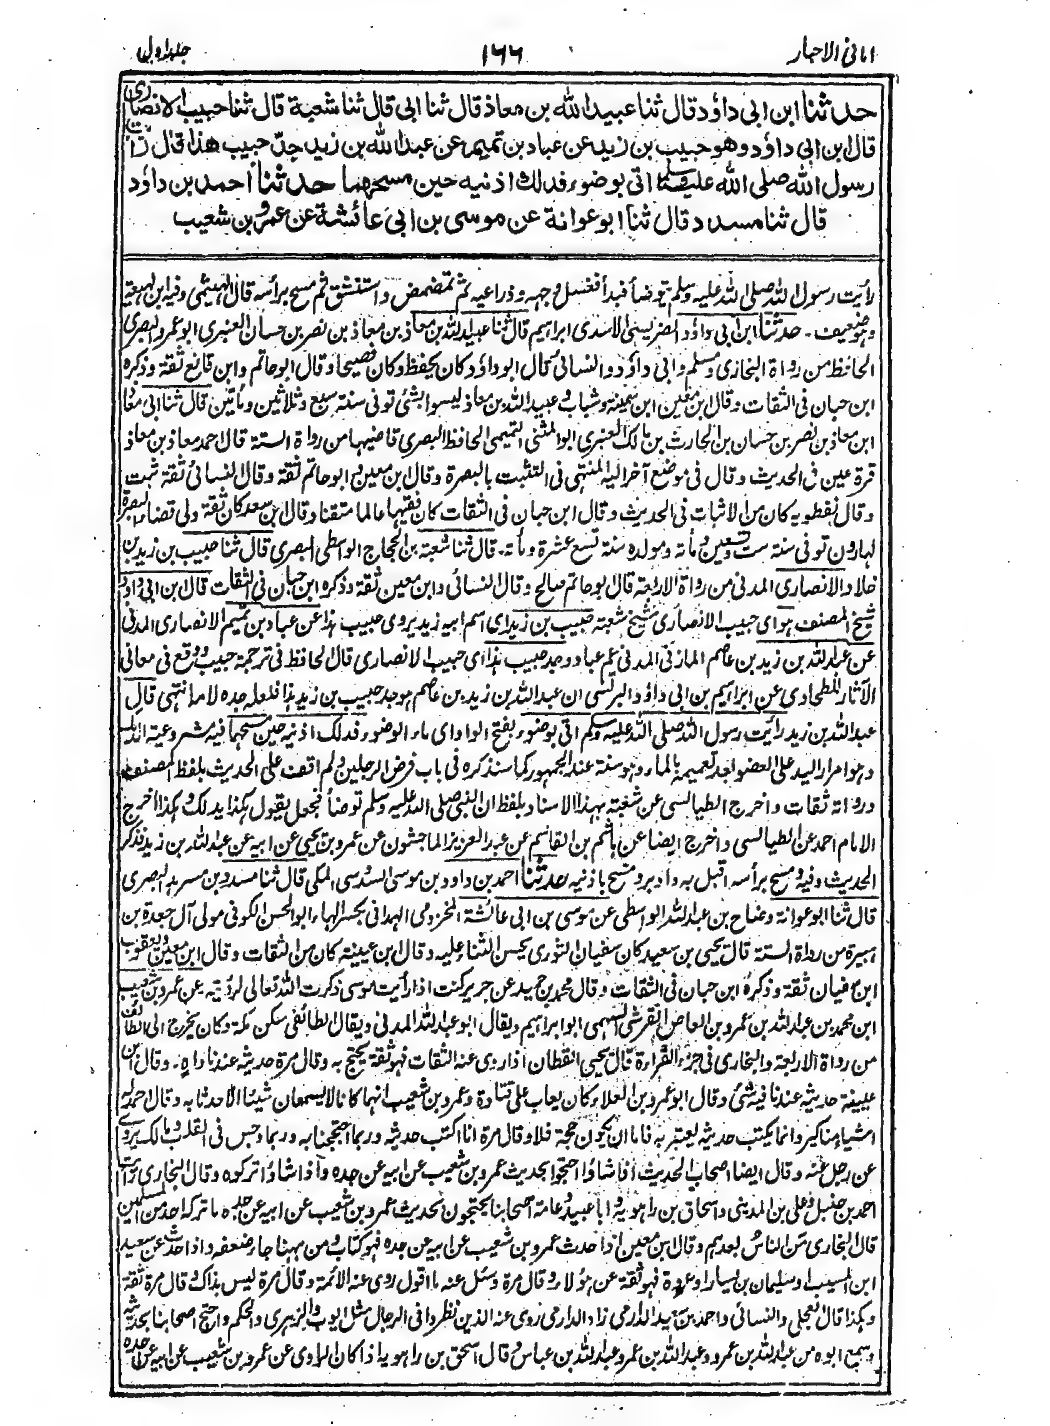 امانی الاحبار ۱۶۶ جلد اول
حدثنا ابن ابی داؤد قال ثنا عبید الله بن معاذ قال ثنا ابی قال ثنا شعبة قال ثنا حبیب الانصاری
قال ابن ابی داؤد وهو حبیب بن زید عن عباد بن تمیم عن عبد الله بن زید جد حبیب هذا قال رأیت
رسول الله صلی الله علیه وسلم اتی بوضوء فدلك اذنیه حین مسحهما حدثنا احمد بن داؤد
قال ثنا مسدد قال ثنا ابو عوانة عن موسی بن ابی عائشة عن عمرو بن شعیب
رأیت رسول الله صلی الله علیه وسلم یتوضأ فبدأ فغسل وجهه وذراعیه ثم تمضمض واستنشق ثم مسح برأسه قال الهیثمی وفیه ابن لهیعة
وهو ضعیف۔ حدثنا ابن ابی داؤد البرلسی الاسدی ابراهیم قال ثنا عبید الله بن معاذ بن معاذ بن نصر بن حسان العنبری ابو عمرو البصری
الحافظ من رواة البخاری ومسلم وابی داؤد والنسائی قال ابو داؤد کان یحفظ وکان فصیحا وقال ابو حاتم وابن قانع ثقة وذکره
ابن حبان فی الثقات وقال ابن معین ابن سمینة وشباب وعبید الله بن معاذ لیسوا بشئ توفی سنة سبع وثلاثین ومأتین قال ثنا ابی معاذ
ابن معاذ بن نصر بن حسان بن الحارث بن مالك العنبری ابو المثنی التمیمی الحافظ البصری قاضیها من رواة الستة قال احمد معاذ بن معاذ
قرة عین فی الحدیث وقال فی موضع آخر الیه المنتهی فی التثبت بالبصرة وقال ابن معین وابو حاتم ثقة وقال النسائی ثقة ثبت
وقال نفطویه کان من الاثبات فی الحدیث وقال ابن حبان فی الثقات کان فقیها عالما متقنا وقال ابن سعد کان ثقة ولی قضاء البصرة
لهارون توفی سنة ست وتسعین ومأة ومولده سنة تسع عشرة ومأة۔ قال ثنا شعبة بن الحجاج الواسطی البصری قال ثنا حبیب بن زید بن
خلاد الانصاری المدنی من رواة الاربعة قال ابو حاتم صالح وقال النسائی وابن معین ثقة وذکره ابن حبان فی الثقات قال ابن ابی داؤد
شیخ المصنف هو ای حبیب الانصاری شیخ شعبة حبیب بن زید ای اسم ابیه زید یروی حبیب هذا عن عباد بن تمیم الانصاری المدنی
عن عبد الله بن زید بن عاصم المازنی المدنی عم عباد وجد حبیب هذا ای حبیب الانصاری قال الحافظ فی ترجمة حبیب ووقع فی معانی
الآثار للطحاوی عن ابراهیم بن ابی داؤد البرلسی ان عبد الله بن زید بن عاصم هو جد حبیب بن زید هذا فلعله جده لامه انتهی قال
عبد الله بن زید رأیت رسول الله صلی الله علیه وسلم اتی بوضوء بفتح الواو ای ماء الوضوء فدلك اذنیه حین مسحهما فیه مشروعیة الدلك
وهو امرار الید علی العضو بعد تعمیمه بالماء وهو سنة عند الجمهور کما سنذکره فی باب فرض الرجلین ولم اقف علی الحدیث بلفظ المصنف
ورواته ثقات واخرج الطیالسی عن شعبة بهذا الاسناد بلفظ ان النبی صلی الله علیه وسلم توضأ فجعل یقول هکذا یدلك وهکذا اخرج
الامام احمد عن الطیالسی واخرج ایضا عن هاشم بن القاسم عن عبد العزیز الماجشون عن عمرو بن یحیی عن ابیه عن عبد الله بن زید فذکر
الحدیث وفیه ومسح برأسه اقبل به وادبر ومسح باذنیه حدثنا احمد بن داود بن موسی السدوسی المکی قال ثنا مسدد بن مسرهد البصری
قال ثنا ابو عوانة وضاح بن عبد الله الواسطی عن موسی بن ابی عائشة المخزومی الهمدانی بکسر الهاء ابو الحسن الکوفی مولی آل جعدة بن
هبیرة من رواة الستة قال یحیی بن سعید کان سفیان الثوری یحسن الثناء علیه وقال ابن عیینة کان من الثقات وقال ابن معین ویعقوب
ابن سفیان ثقة وذکره ابن حبان فی الثقات وقال محمد بن حمید عن جریر کنت اذا رأیت موسی ذکرت الله تعالی لرؤیته عن عمرو بن شعیب
ابن محمد بن عبد الله بن عمرو بن العاص القرشی السهمی ابو ابراهیم ویقال ابو عبد الله المدنی ویقال الطائفی سکن مکة وکان یخرج الی الطائف
من رواة الاربعة والبخاری فی جزء القراءة قال یحیی القطان اذا روی عنه الثقات فهو ثقة یحتج به وقال مرة حدیثه عندنا واه۔ وقال ابن
عیینة حدیثه عندنا فیه شئ وقال ابو عمرو بن العلاء کان یعاب علی قتادة وعمرو بن شعیب انهما کانا لا یسمعان شیئا الا حدثا به وقال احمد له
اشیاء مناکیر وانما یکتب حدیثه لیعتبر به فاما ان یکون حجة فلا وقال مرة انا اکتب حدیثه وربما احتججنا به وربما وجس فی القلب ومالك یروی
عن رجل عنه وقال ایضا اصحاب الحدیث اذا شاؤا احتجوا بحدیث عمرو بن شعیب عن ابیه عن جده واذا شاؤا ترکوه وقال البخاری رأیت
احمد بن حنبل وعلی بن المدینی واسحاق بن راهویه وابا عبید وعامة اصحابنا یحتجون بحدیث عمرو بن شعیب عن ابیه عن جده ما ترکه احد من المسلمین
قال البخاری من الناس بعدهم وقال ابن معین اذا حدث عمرو بن شعیب عن ابیه عن جده فهو کتاب ومن ههنا جاء ضعفه واذا حدث عن سعید
ابن المسیب وسلیمان بن یسار وعروة فهو ثقة عن هؤلاء وقال مرة وسئل عنه ما اقول روی عنه الائمة وقال مرة لیس بذاك وقال مرة ثقة
وهکذا قال العجلی والنسائی واحمد بن سعید الدارمی زاد الدارمی روی عنه الذین نظروا فی الرجال مثل ایوب والزهری والحکم واحتج اصحابنا بحدیثه
وسمع ابوه من عبد الله بن عمرو وعبد الله بن عمر وعبد الله بن عباس وقال اسحق بن راهویه اذا کان الراوی عن عمرو بن شعیب عن ابیه عن جده